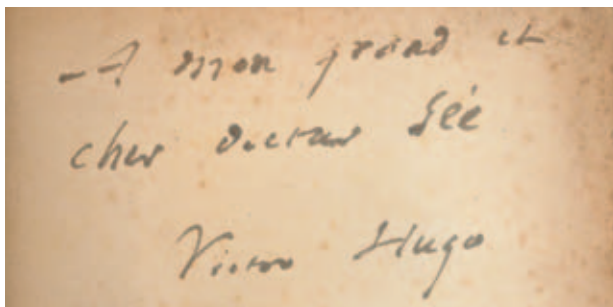 – A mon grand et
cher docteur Sée
Victor Hugo